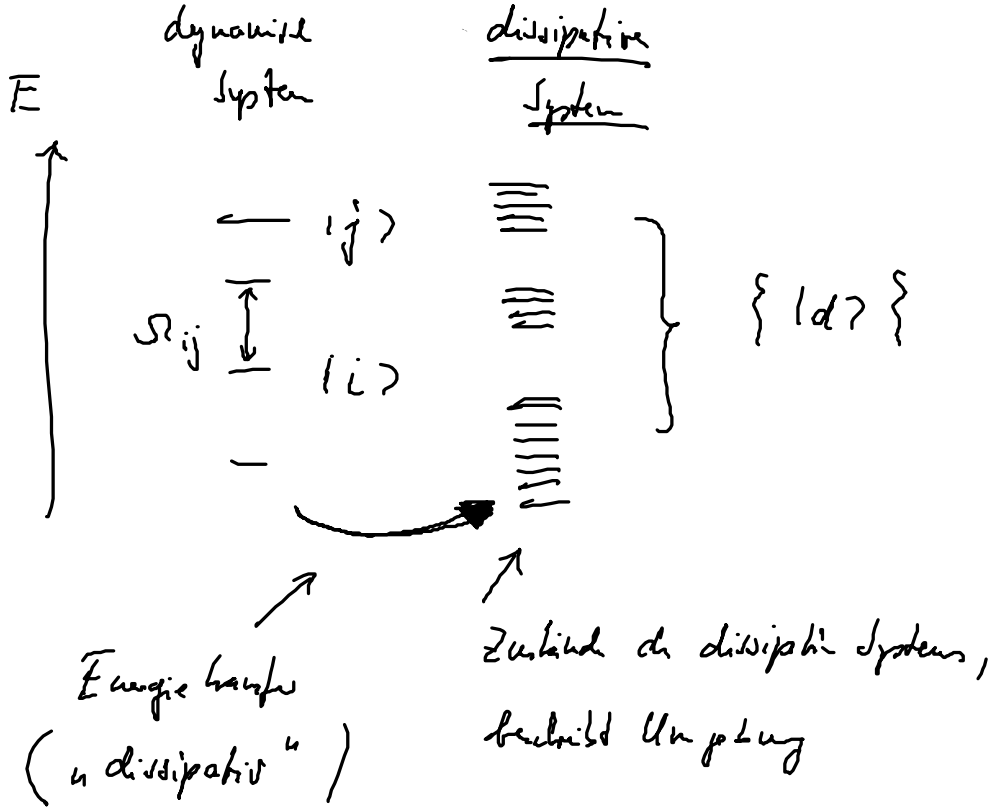 dynamisch
System
dissipatives
System
E
|j⟩
Ω_ij
|i⟩
{ |d⟩ }
Energietransfer
( „dissipativ“ )
Zustände des dissipativen Systems,
beschreibt Umgebung